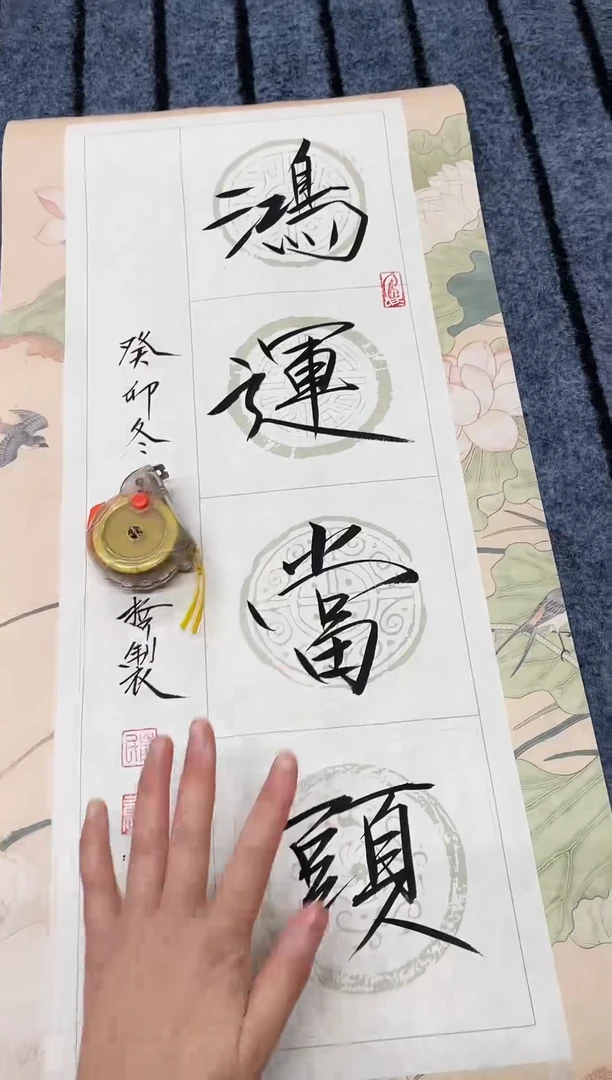 鴻
運
當
頭
癸卯冬
製